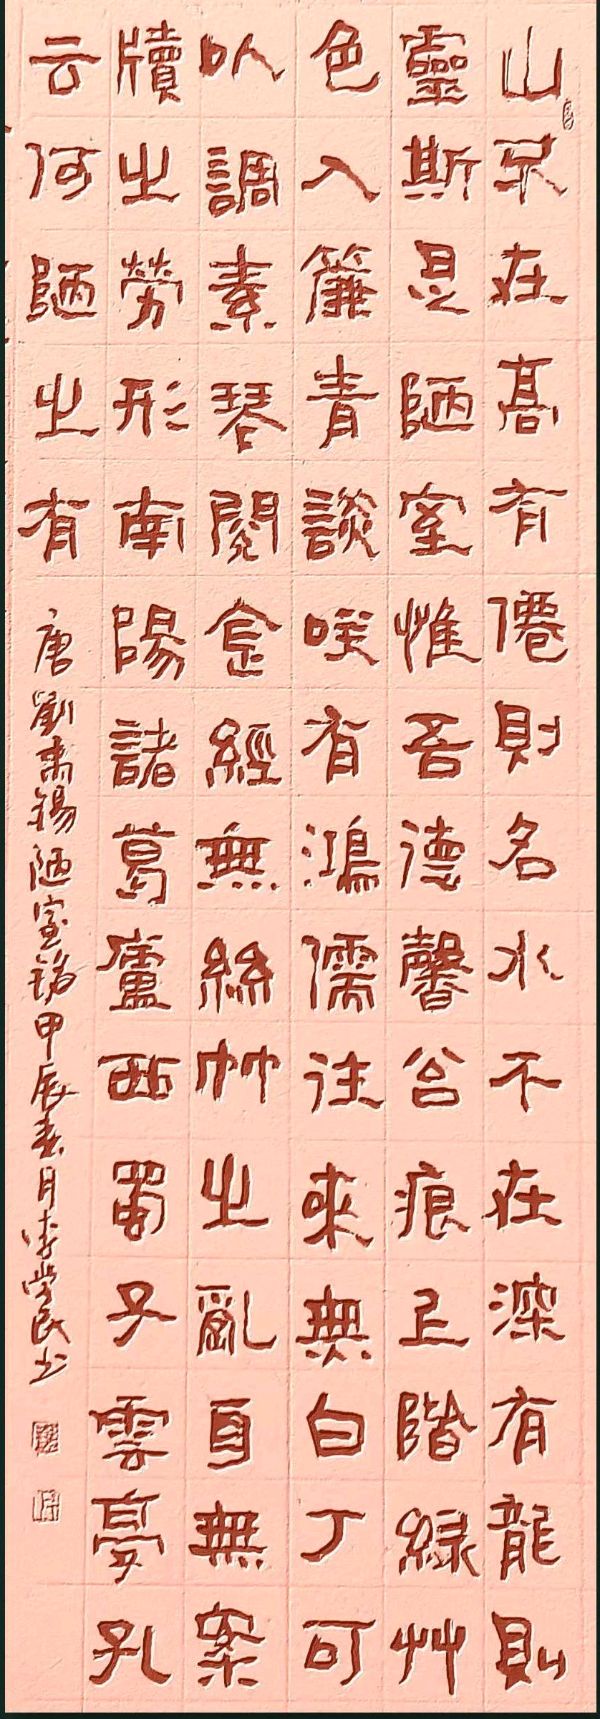 山不在高有僊則名水不在深有龍則
靈斯是陋室惟吾德馨苔痕上階綠艸
色入簾青談咲有鴻儒往來無白丁可
以調素琴閱金經無絲竹之亂耳無案
牘之勞形南陽諸葛廬西蜀子雲亭孔
云何陋之有
唐劉禹錫陋室銘甲辰春月李学民书